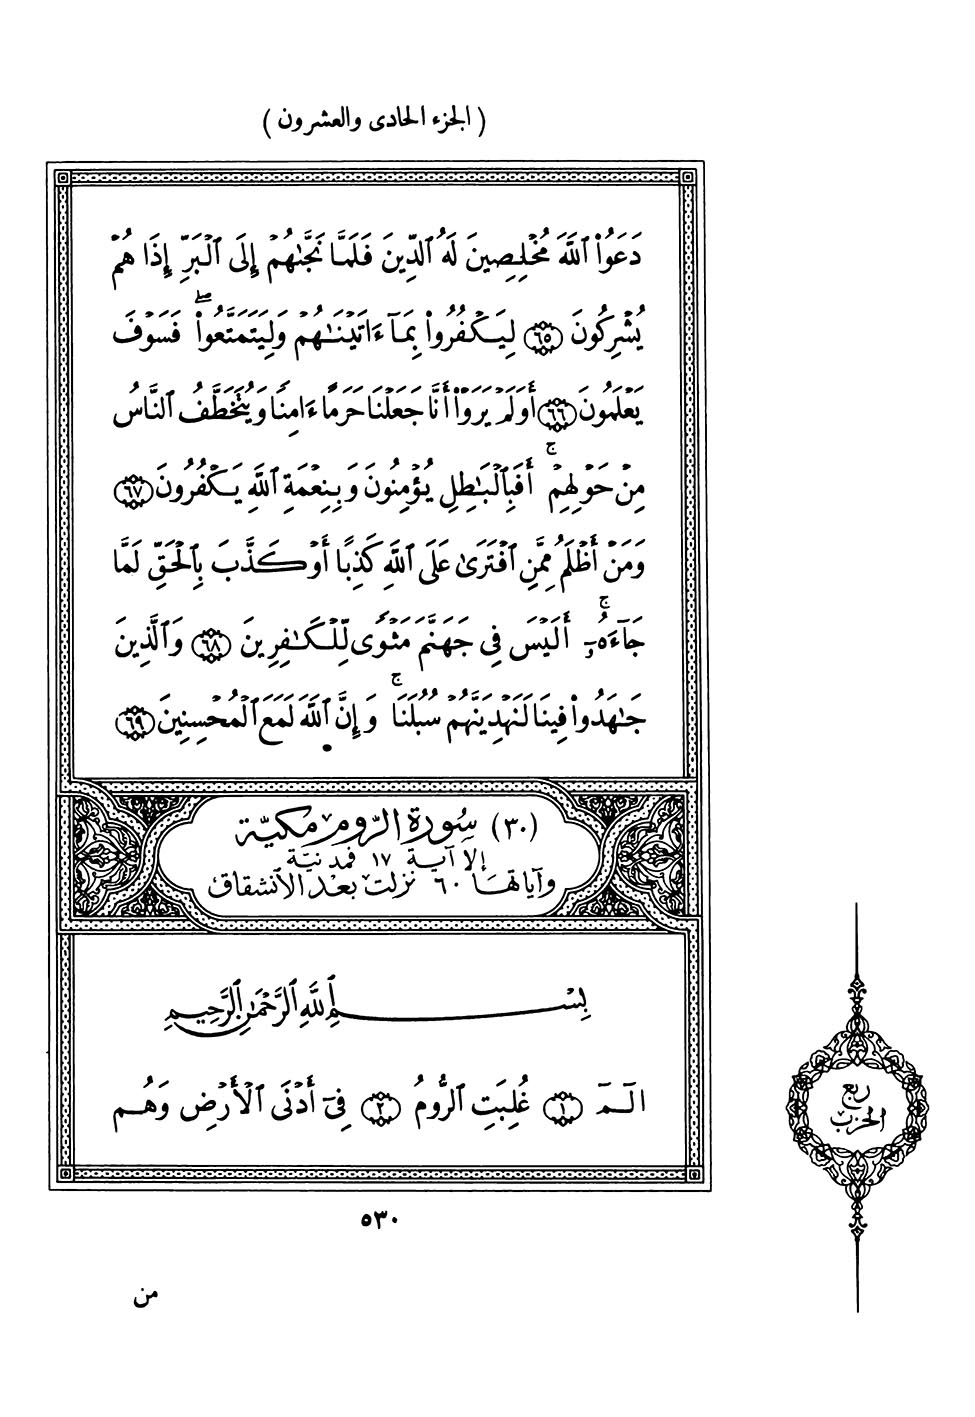 ( الجزء الحادى والعشرون )
دَعَوُا۟ ٱللَّهَ مُخْلِصِينَ لَهُ ٱلدِّينَ فَلَمَّا نَجَّىٰهُمْ إِلَى ٱلْبَرِّ إِذَا هُمْ
يُشْرِكُونَ ۝٦٥ لِيَكْفُرُوا۟ بِمَآ ءَاتَيْنَـٰهُمْ وَلِيَتَمَتَّعُوا۟ ۖ فَسَوْفَ
يَعْلَمُونَ ۝٦٦ أَوَلَمْ يَرَوْا۟ أَنَّا جَعَلْنَا حَرَمًا ءَامِنًا وَيُتَخَطَّفُ ٱلنَّاسُ
مِنْ حَوْلِهِمْ ۚ أَفَبِٱلْبَـٰطِلِ يُؤْمِنُونَ وَبِنِعْمَةِ ٱللَّهِ يَكْفُرُونَ ۝٦٧
وَمَنْ أَظْلَمُ مِمَّنِ ٱفْتَرَىٰ عَلَى ٱللَّهِ كَذِبًا أَوْ كَذَّبَ بِٱلْحَقِّ لَمَّا
جَآءَهُۥٓ ۚ أَلَيْسَ فِى جَهَنَّمَ مَثْوًى لِّلْكَـٰفِرِينَ ۝٦٨ وَٱلَّذِينَ
جَـٰهَدُوا۟ فِينَا لَنَهْدِيَنَّهُمْ سُبُلَنَا ۚ وَإِنَّ ٱللَّهَ لَمَعَ ٱلْمُحْسِنِينَ ۝٦٩
(٣٠) سُورَة الرّوم مكيّة
إلا آية ١٧ فمدنيّة
وآياتها ٦٠ نزلت بعد الانشقاق
بِسْمِ ٱللَّهِ ٱلرَّحْمَـٰنِ ٱلرَّحِيمِ
الٓمٓ ۝١ غُلِبَتِ ٱلرُّومُ ۝٢ فِىٓ أَدْنَى ٱلْأَرْضِ وَهُم
ربع
الحزب
٥٣٠
من